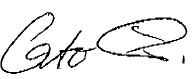 Cato R.